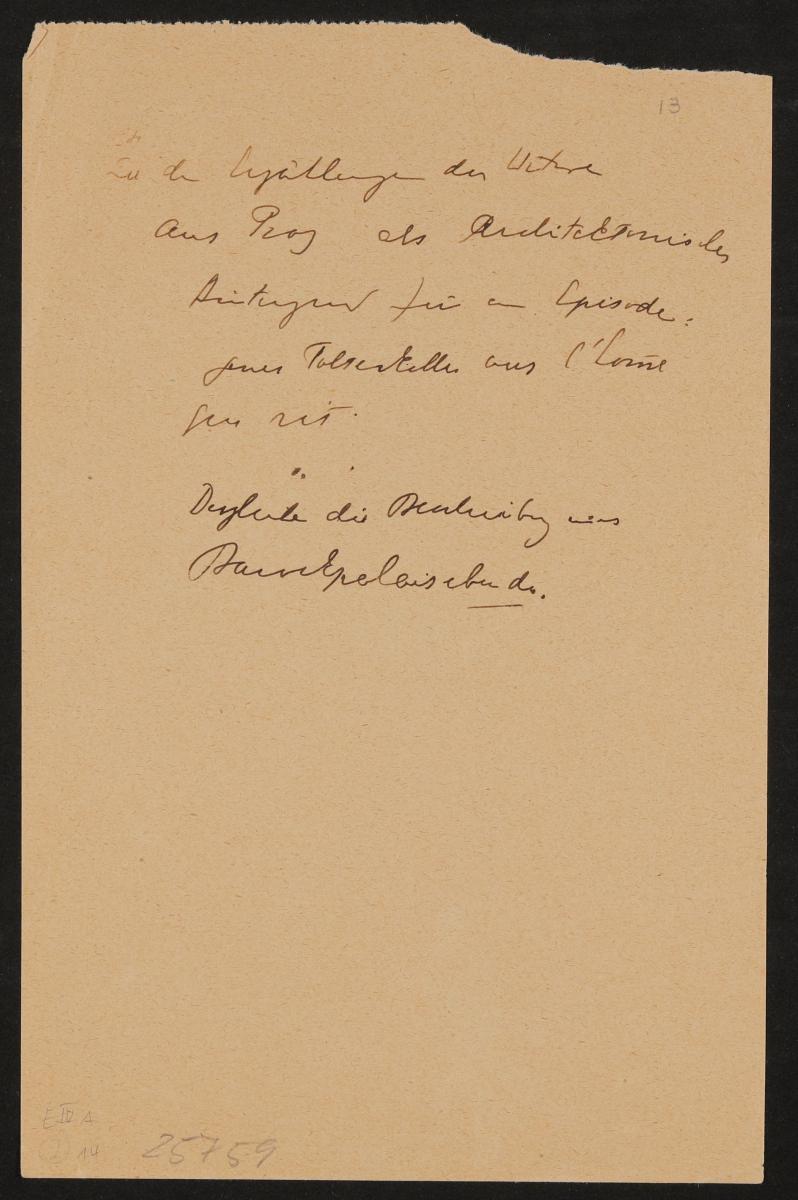 13
Zu den Erzählungen der Witwe
aus Prag als Architektonischer
Hintergrund für eine Episode:
jener Folterkeller aus l'homme
qui rit.
Dergleichen die Beschreibung eines
Barockpalais ebenda.
E IV A
14
25759